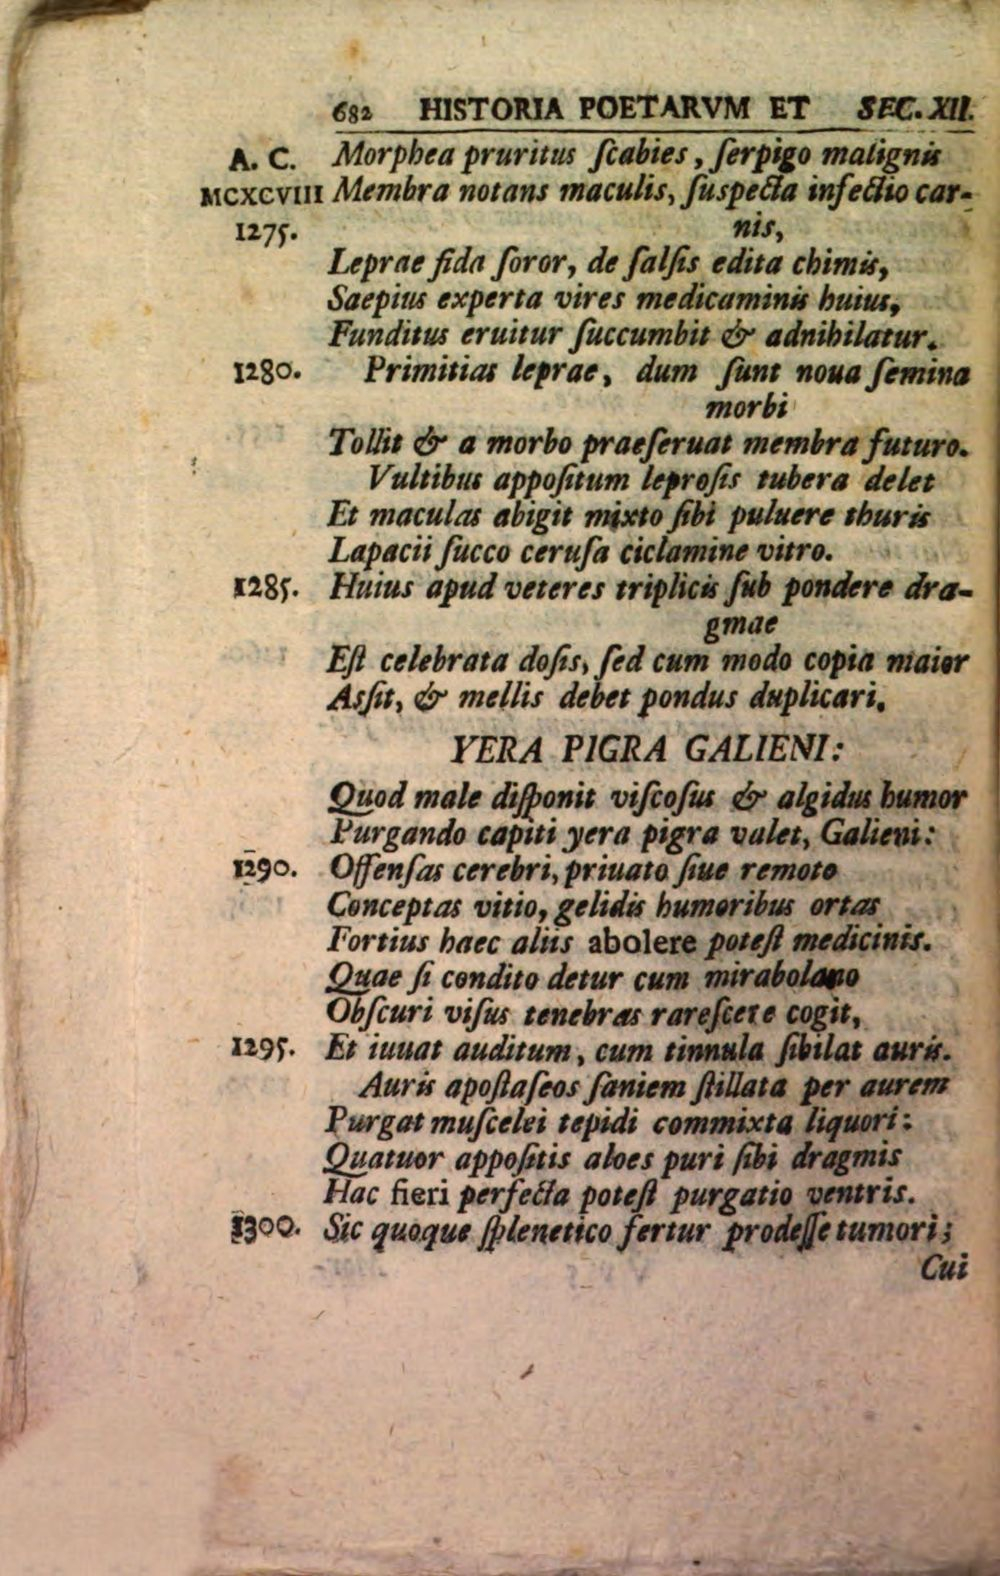 682 HISTORIA POETARVM ET SEC. XII.
A. C. Morphea pruritus ſcabies, ſerpigo malignis
MCXCVIII Membra notans maculis, ſuſpecta infectio car-
1275. nis,
Leprae fida ſoror, de ſalſis edita chimis,
Saepius experta vires medicaminis huius,
Funditus eruitur ſuccumbit & adnihilatur.
1280. Primitias leprae, dum ſunt noua ſemina
morbi
Tollit & a morbo praeſeruat membra futuro.
Vultibus appoſitum leproſis tubera delet
Et maculas abigit mixto ſibi puluere thuris
Lapacii ſucco ceruſa ciclamine vitro.
1285. Huius apud veteres triplicis ſub pondere dra-
gmae
Eſt celebrata doſis, ſed cum modo copia maior
Asſit, & mellis debet pondus duplicari.
YERA PIGRA GALIENI:
Quod male diſponit viſcoſus & algidus humor
Purgando capiti yera pigra valet, Galieni:
1290. Offenſas cerebri, priuato ſiue remoto
Conceptas vitio, gelidis humoribus ortas
Fortius haec aliis abolere poteſt medicinis.
Quae ſi condito detur cum mirabolano
Obſcuri viſus tenebras rareſcere cogit,
1295. Et iuuat auditum, cum tinnula ſibilat auris.
Auris apoſtaſeos ſaniem ſtillata per aurem
Purgat muſcelei tepidi commixta liquori:
Quatuor appoſitis aloes puri ſibi dragmis
Hac fieri perfecta poteſt purgatio ventris.
1300. Sic quoque ſplenetico fertur prodeſſe tumori;
Cui